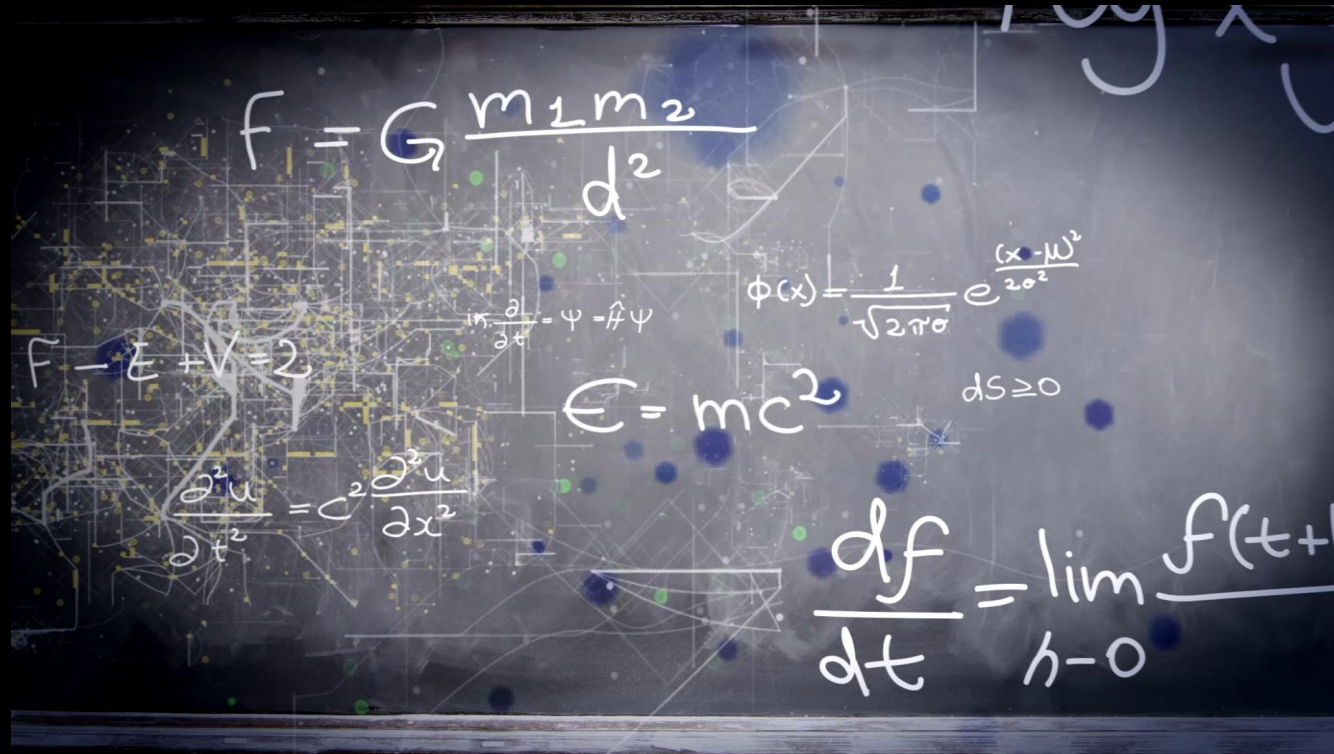 log x y
F = G m1m2 / d²
φ(x) = 1 / √2πσ e (x-μ)² / 2σ²
iħ ∂ / ∂t = Ψ = ĤΨ
F - E + V = 2
E = mc²
dS ≥ 0
∂²u / ∂t² = c² ∂²u / ∂x²
df / dt = lim h-0 f(t+